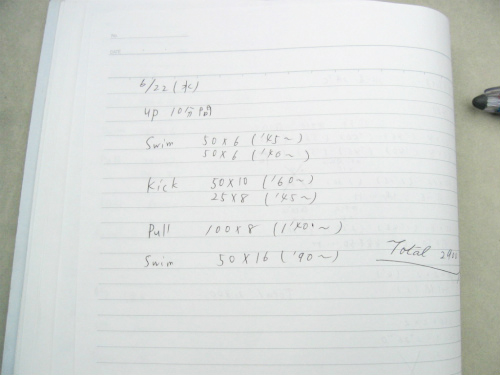 6/22 (水)
up 10分間
Swim 50×6 ('45~)
50×6 ('40~)
Kick 50×10 ('60~)
25×8 ('45~)
Pull 100×8 (1'40~)
Swim 50×16 ('90~)
Total